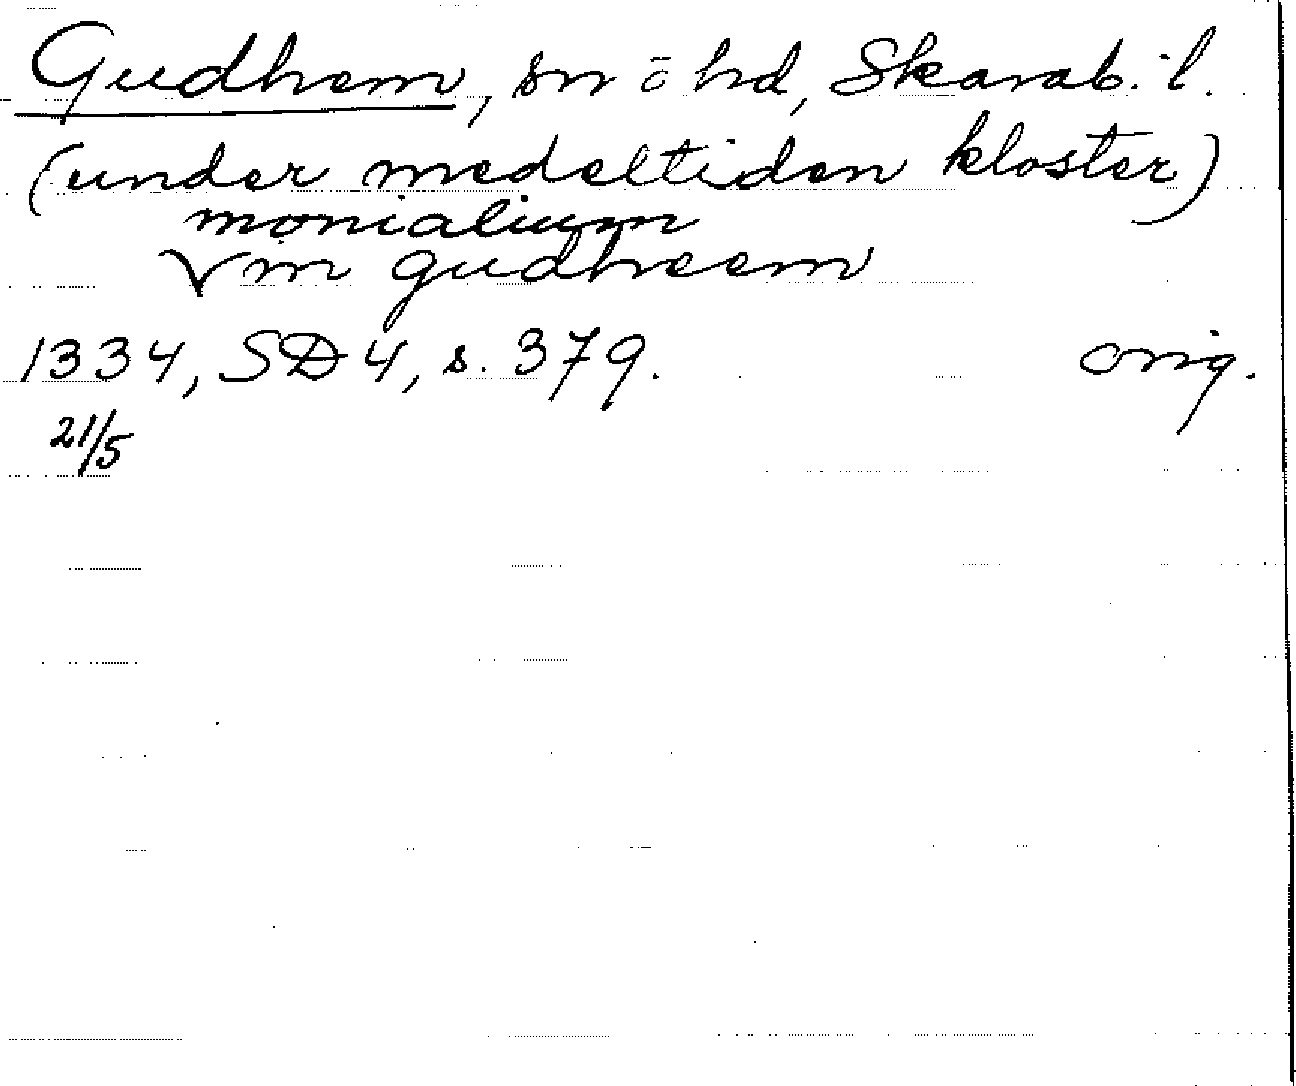 Gudhem, sn o hd, Skarab. l.
(under medeltiden kloster)
monialium
√ in gudheem
1334, SD 4, s. 379. orig.
21/5